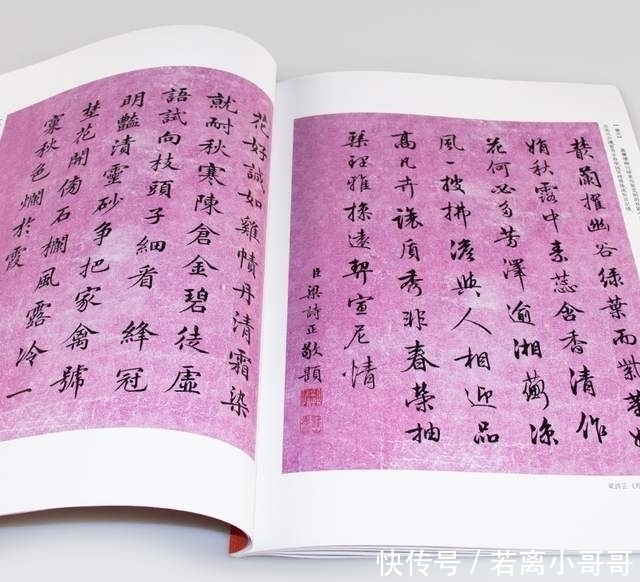 花好誠如雞幘丹清霜染
就耐秋寒陳倉金碧徒虛
語試向枝頭子細看絳冠
明豔漬靈砂爭把家禽號
埜花開傍石欄風露冷一
窠秋色爛於霞
擢幽谷綠葉而紫莖
娟秋露中素蕊含香清作
花何必多芳澤逾湘蘅涼
風一披拂澹與人相迎品
高凡卉讓質秀非春榮抽
琴理雅操遠契宣尼情
臣梁詩正敬題
快传号/若离小哥哥